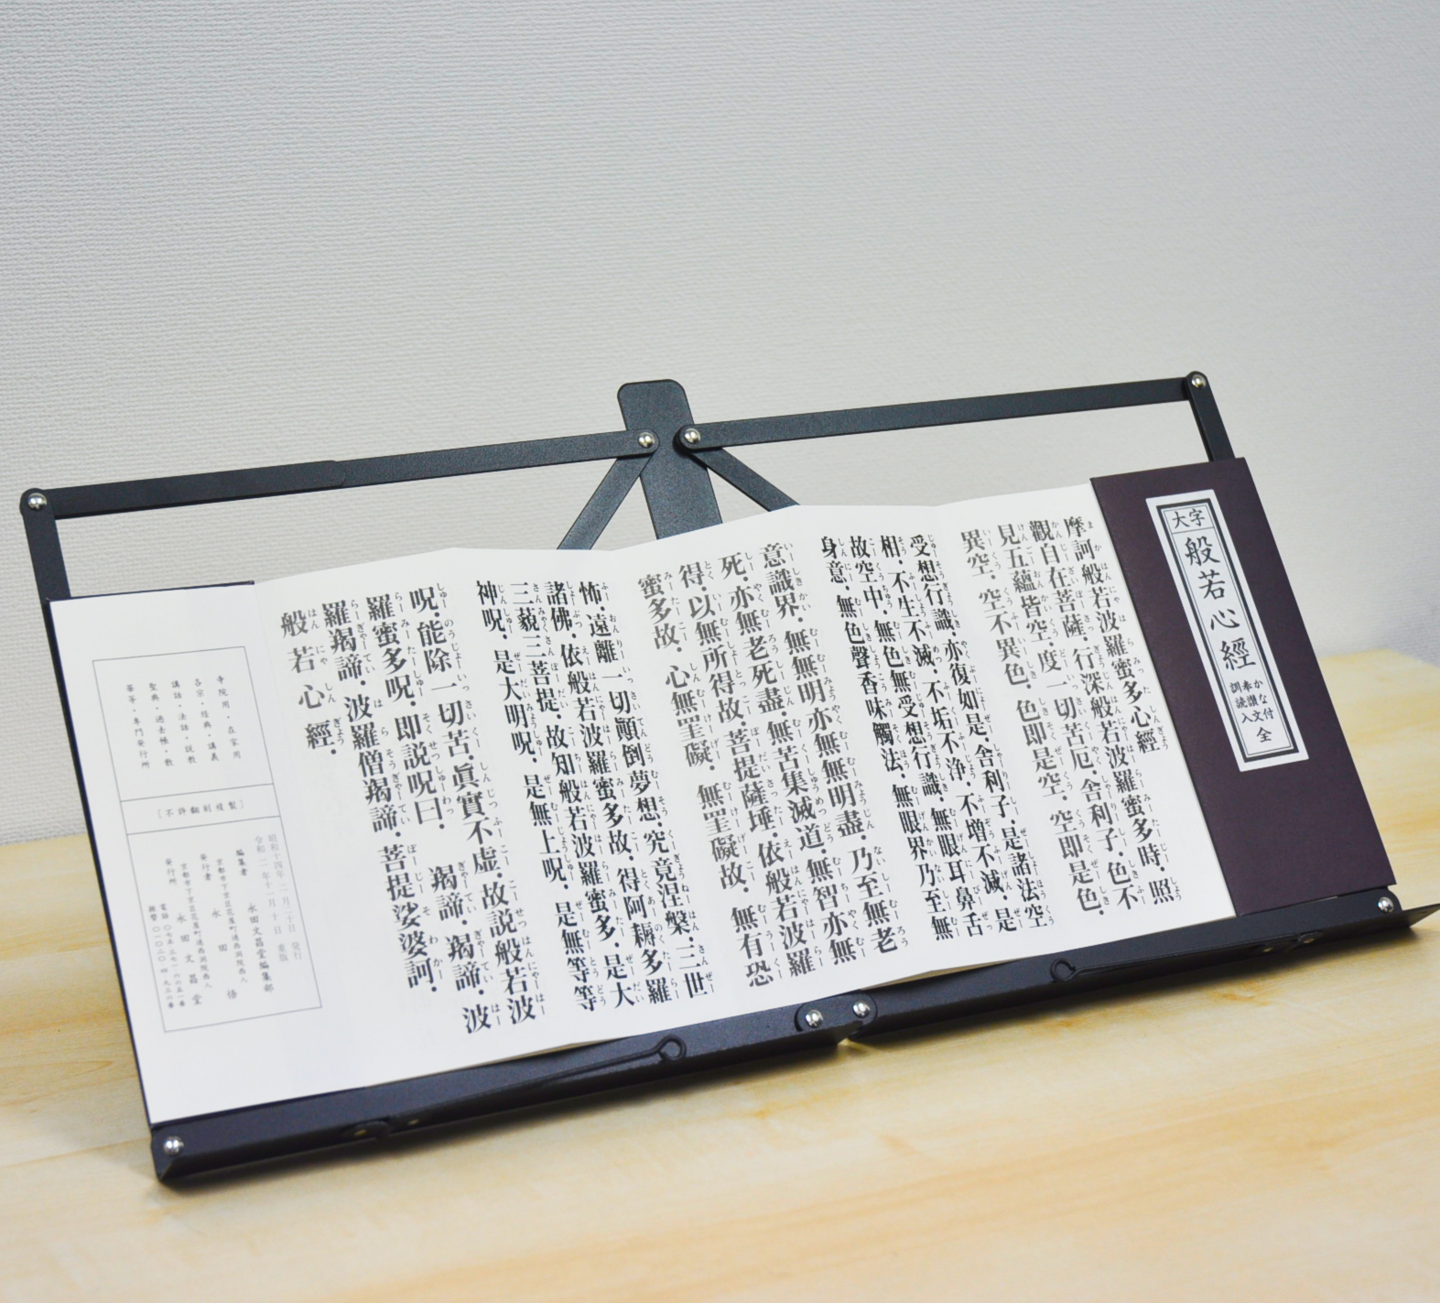 大字
般若心經
かな付
奉讃文
訓読入
全
摩訶般若波羅蜜多心經
觀自在菩薩.行深般若波羅蜜多時.照
見五蘊皆空.度一切苦厄.舎利子.色不
異空.空不異色.色即是空.空即是色.
受想行識.亦復如是.舎利子.是諸法空
相.不生不滅.不垢不浄.不增不滅.是
故空中.無色無受想行識.無眼耳鼻舌
身意.無色聲香味觸法.無眼界乃至無
意識界.無無明亦無無明盡.乃至無老
死.亦無老死盡.無苦集滅道.無智亦無
得.以無所得故.菩提薩埵.依般若波羅
蜜多故.心無罣礙.無罣礙故.無有恐
怖.遠離一切顛倒夢想.究竟涅槃.三世
諸佛.依般若波羅蜜多故.得阿耨多羅
三藐三菩提.故知般若波羅蜜多.是大
神呪.是大明呪.是無上呪.是無等等
呪.能除一切苦.眞實不虚.故説般若波
羅蜜多呪.即説呪曰.羯諦.羯諦.波
羅羯諦.波羅僧羯諦.菩提娑婆訶.
般若心經.
寺院用・在家用
各宗・経典・講義
講話・法話・説教
聖典・過去帳・数
華等・専門発行所
〔不許翻刻複製〕
昭和十四年二月二十日 発行
令和二年十一月十日 重版
編集者 永田文昌堂編集部
発行者 永田 悟
発行所 永田文昌堂